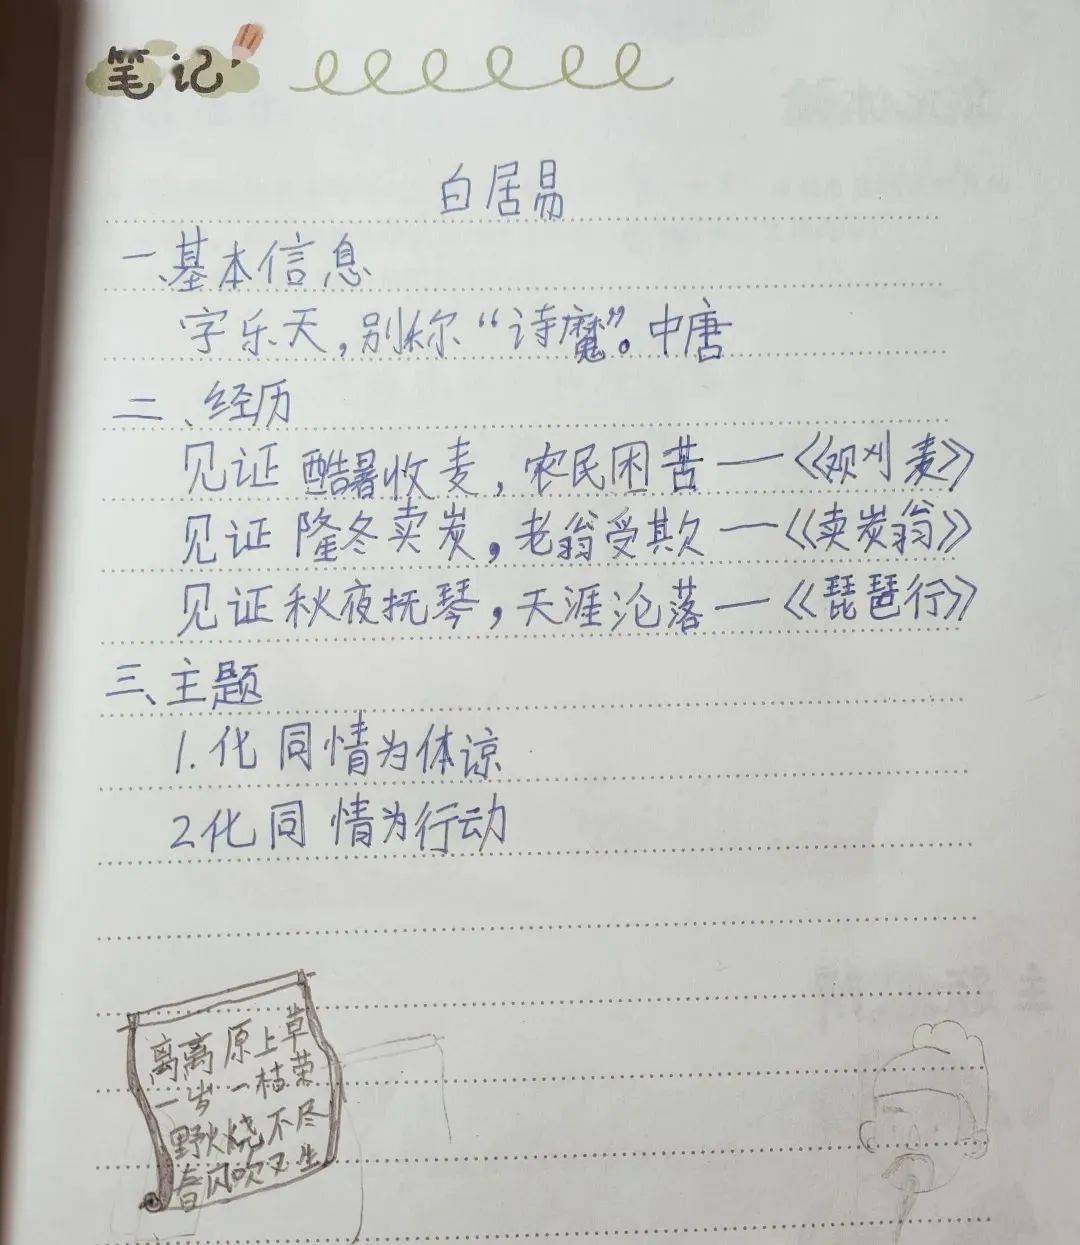 笔记
白居易
一、基本信息
字乐天,别称“诗魔”。中唐
二、经历
见证酷暑收麦,农民困苦——《观刈麦》
见证隆冬卖炭,老翁受欺——《卖炭翁》
见证秋夜抚琴,天涯沦落——《琵琶行》
三、主题
1.化同情为体谅
2.化同情为行动
离离原上草
一岁一枯荣
野火烧不尽
春风吹又生